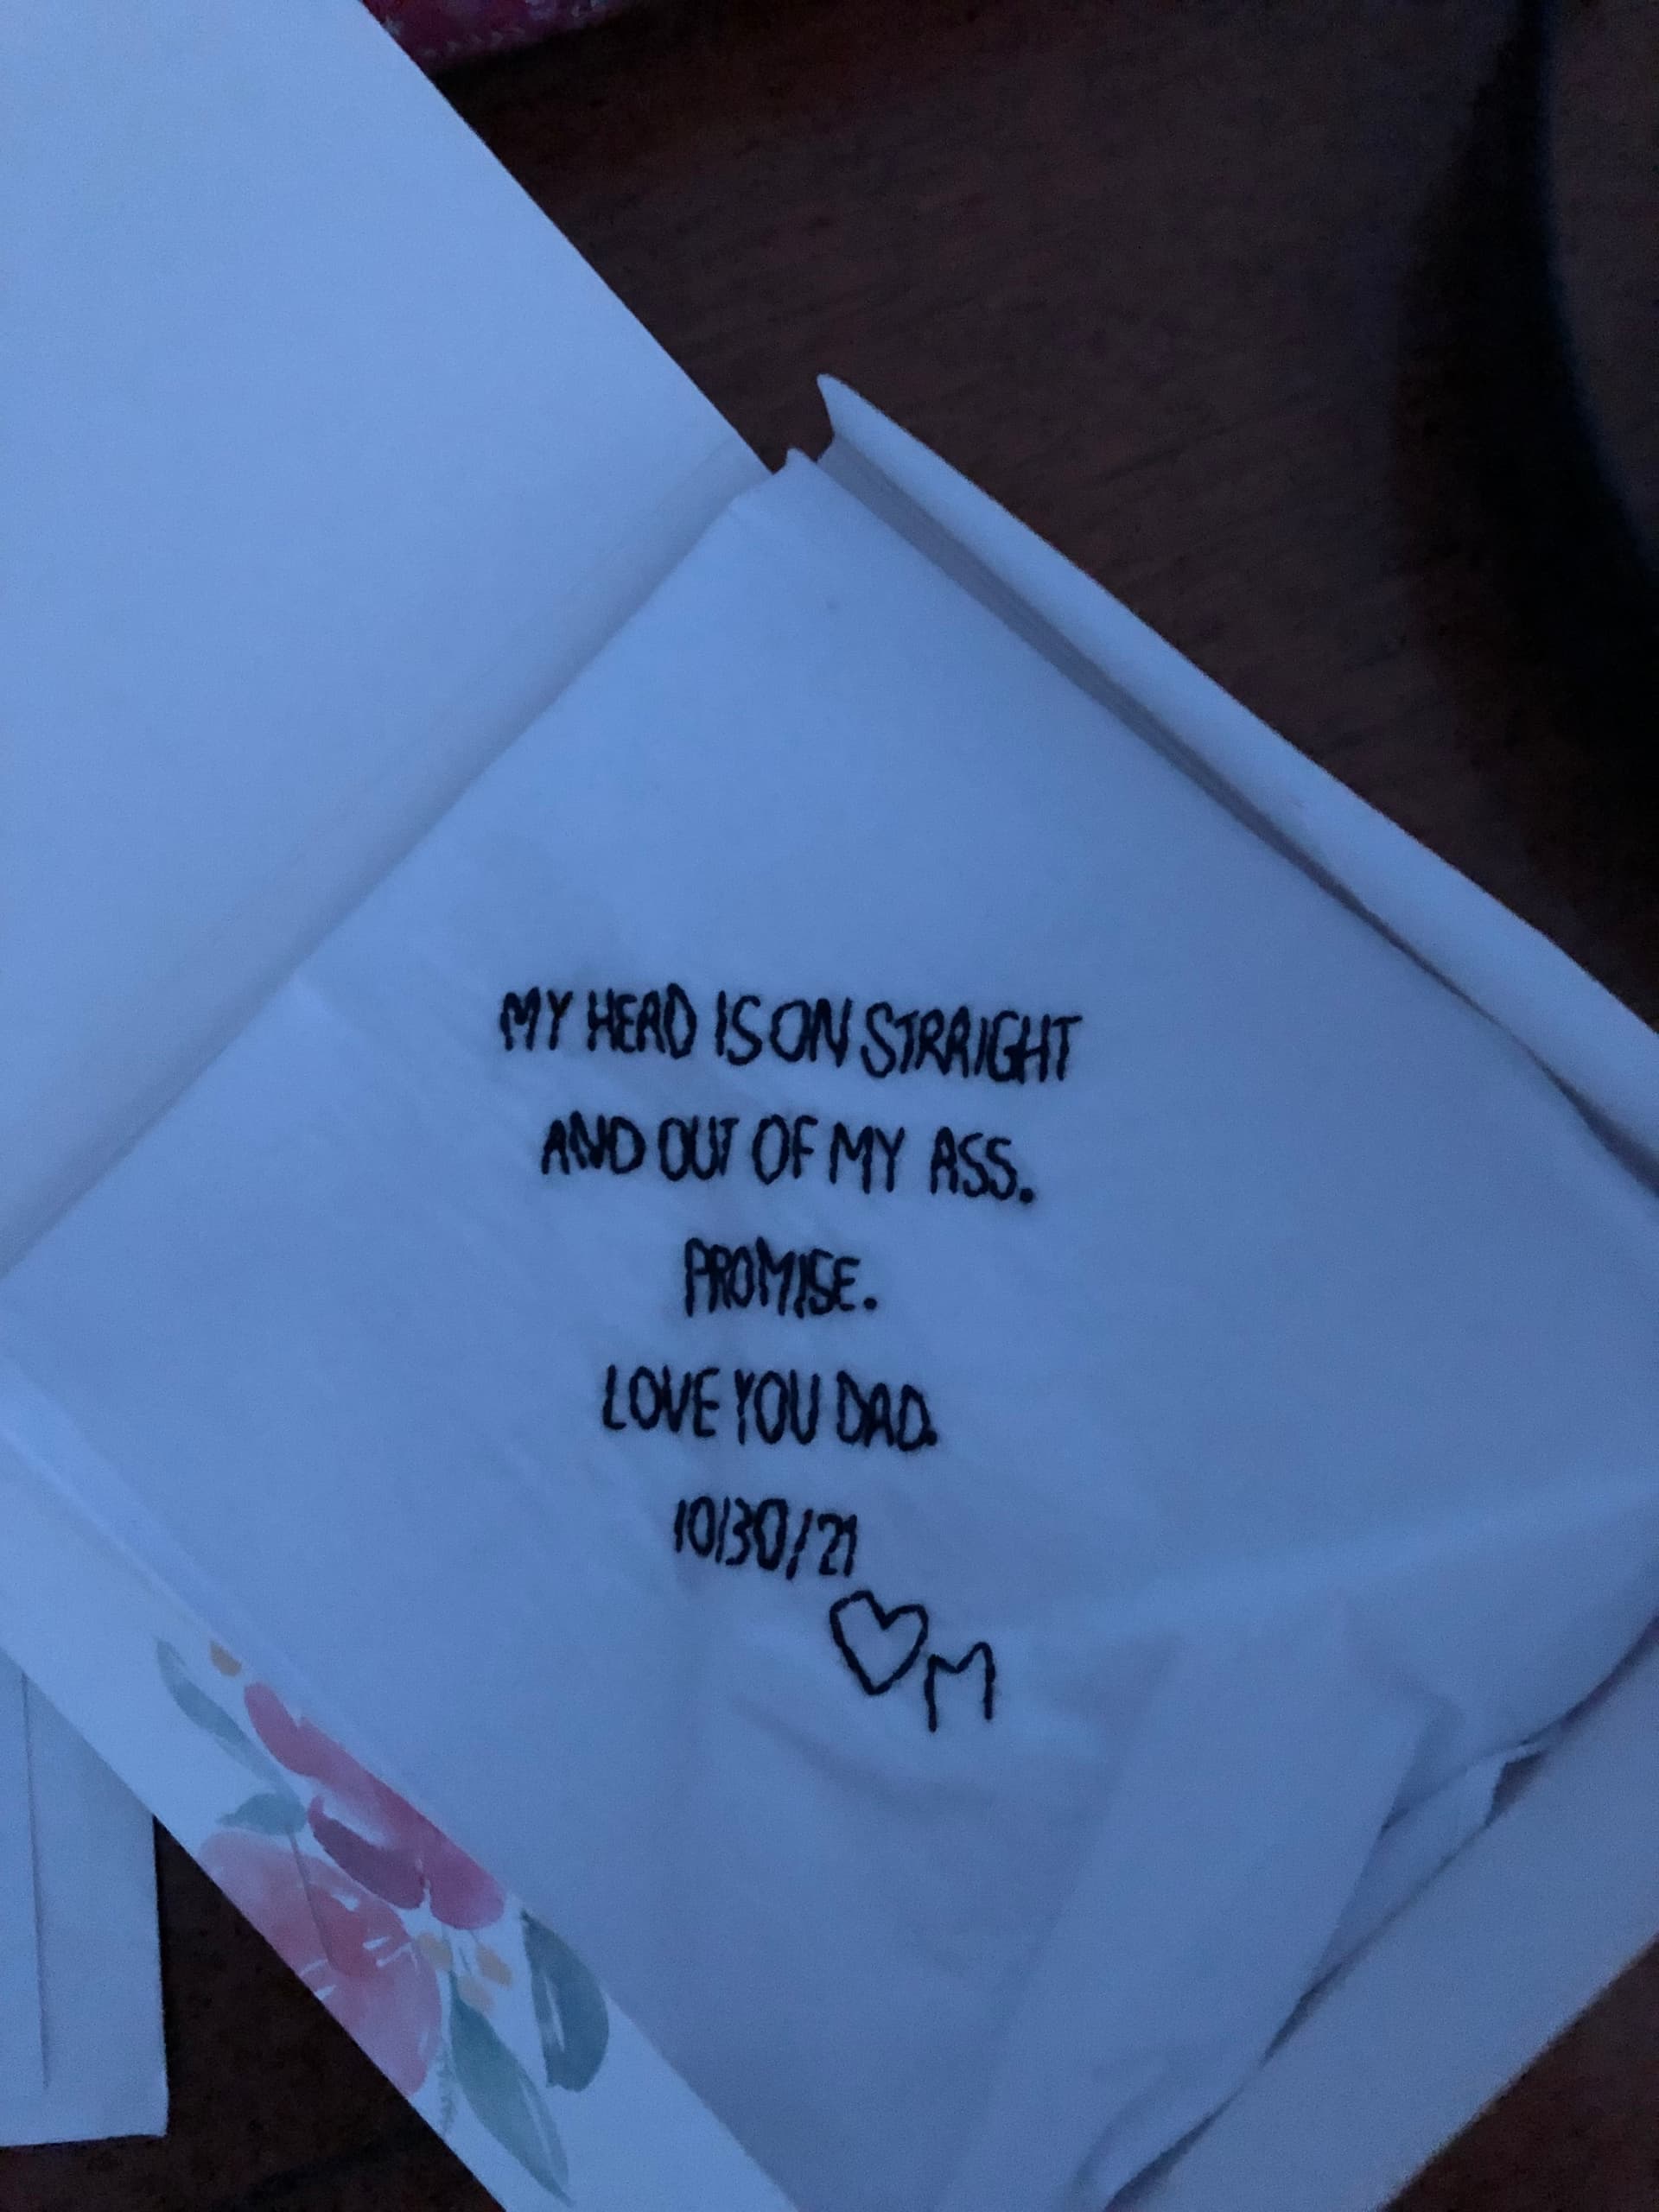 MY HEAD IS ON STRAIGHT
AND OUT OF MY ASS.
PROMISE.
LOVE YOU DAD.
10/30/21
♡M